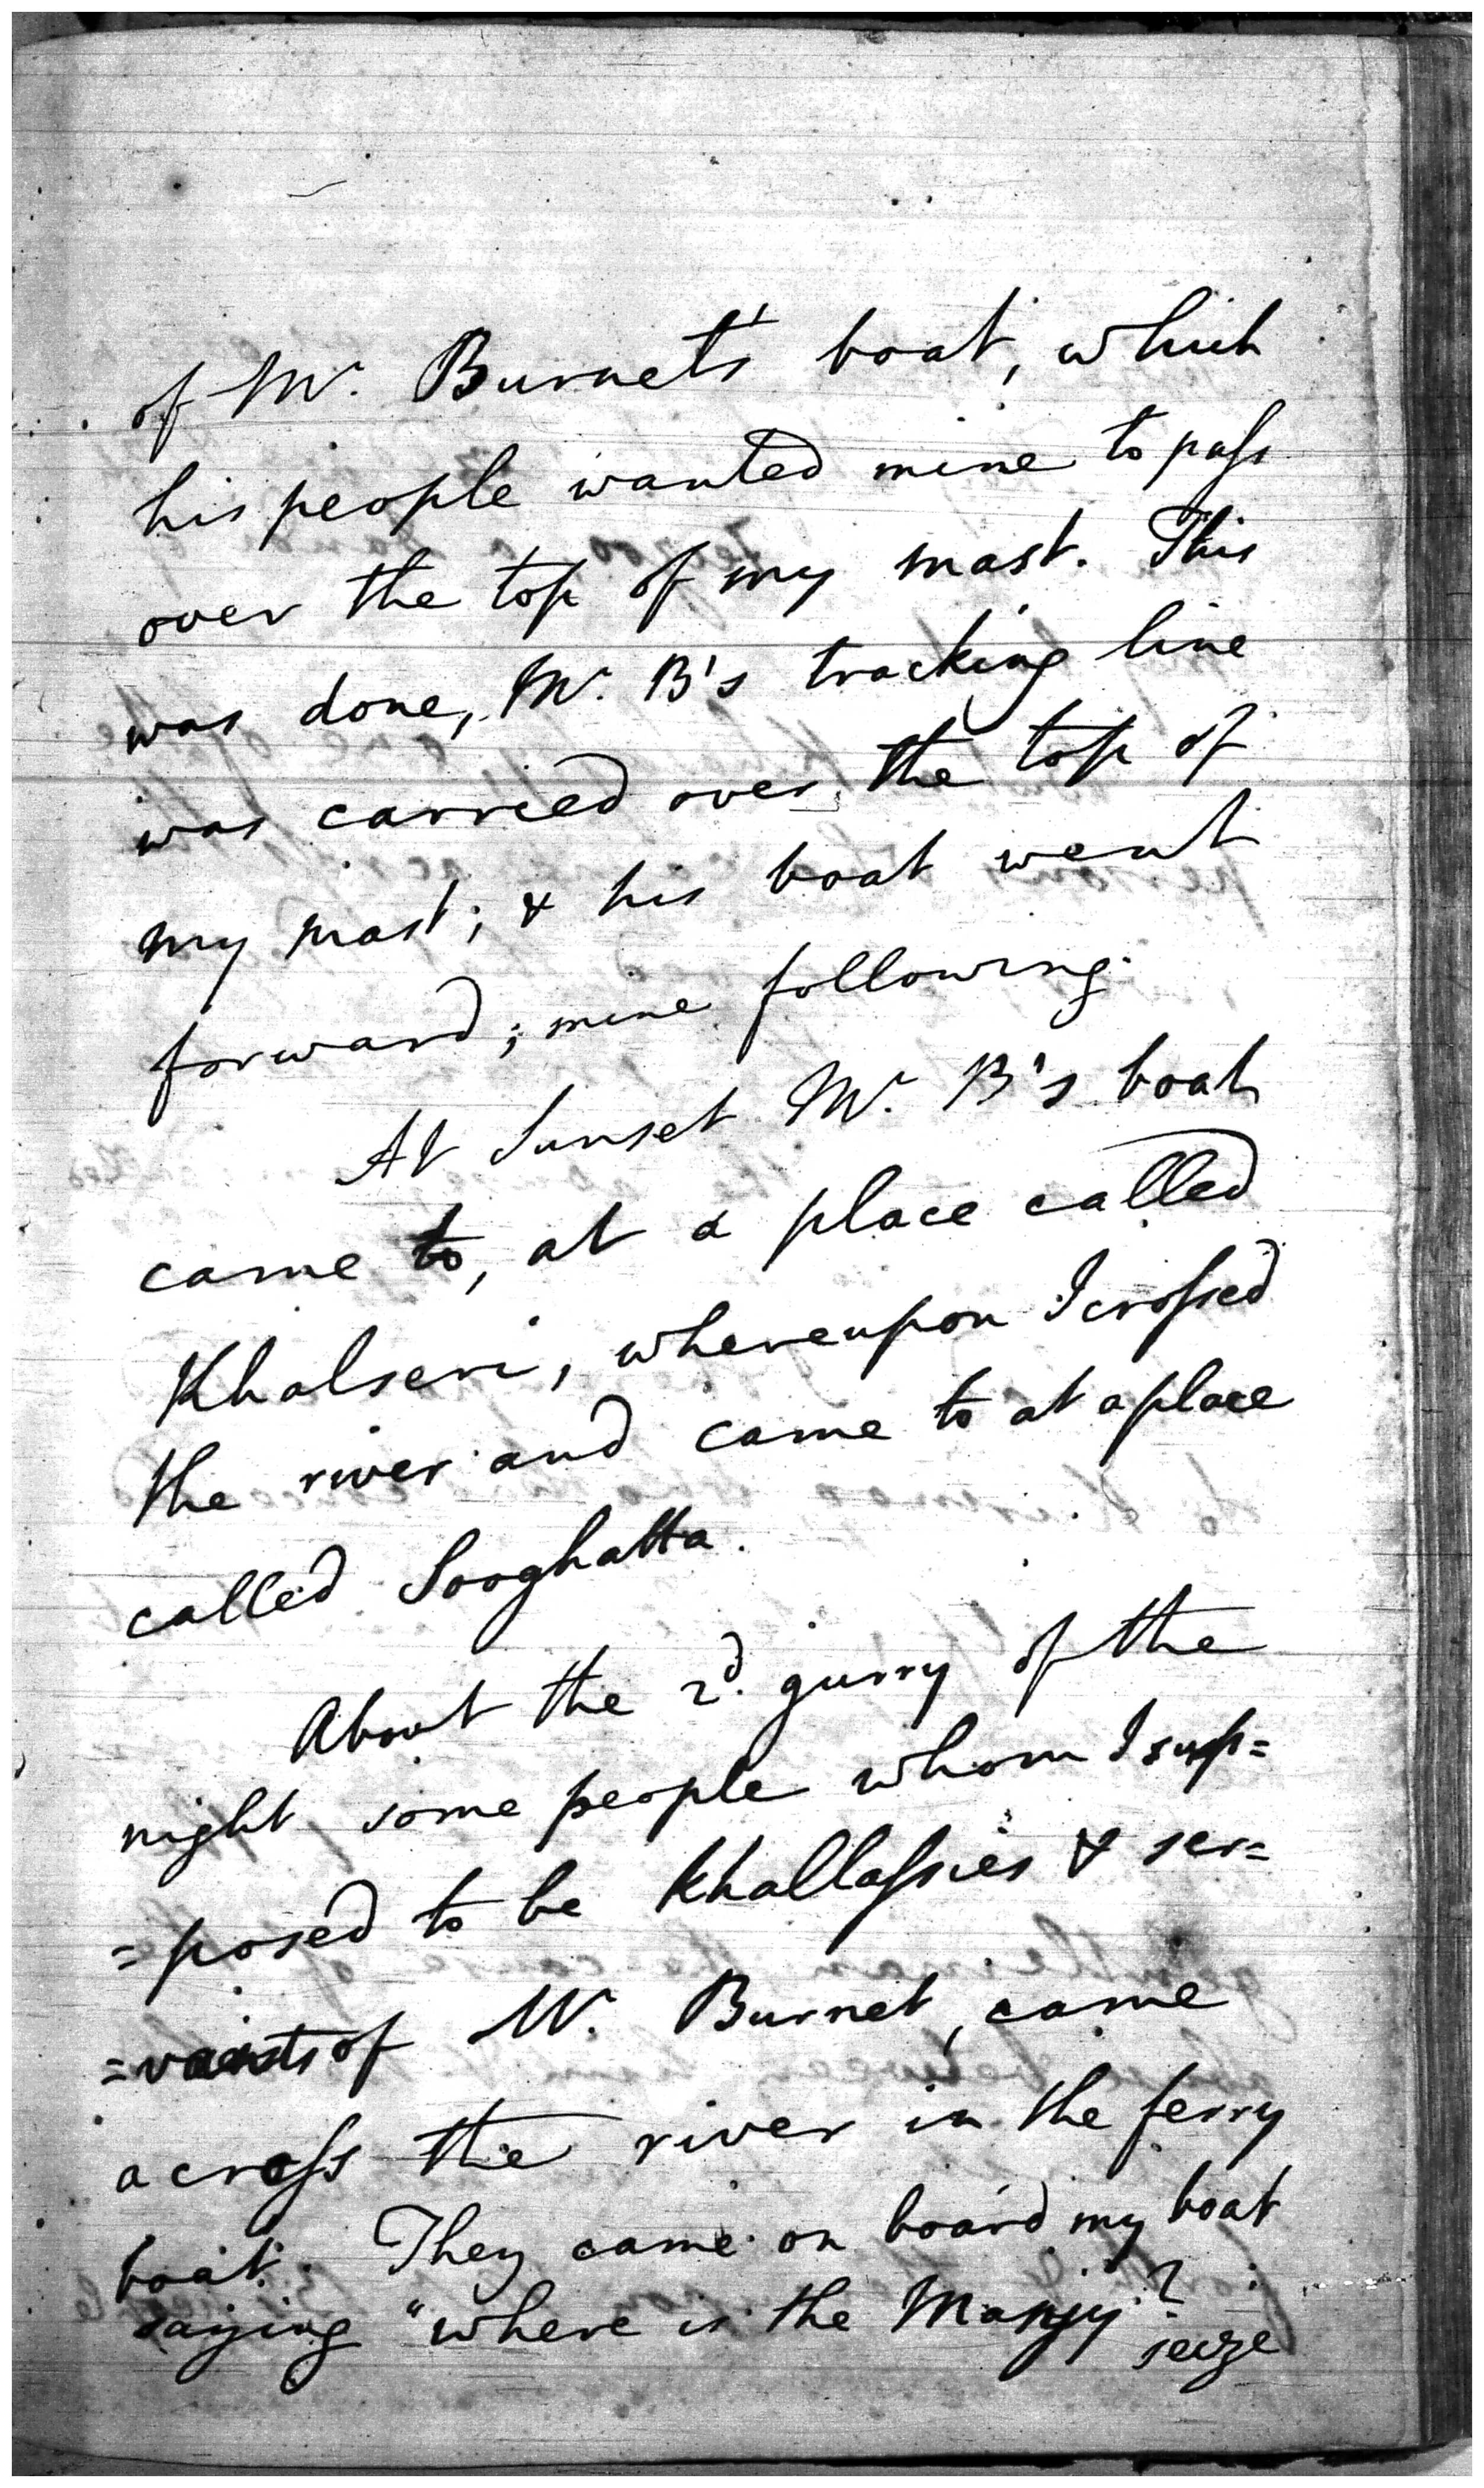 of Mr. Burnet's boat, which
his people wanted mine to pass
over the top of my mast. This
was done, Mr. B's tracking line
was carried over the top of
my mast; & his boat went
forward; mine following.
At Sunset Mr. B's boat
came to, at a place called
Khalseri, whereupon I crossed
the river and came to at a place
called Sooghatta.
About the 2d. gurry of the
night some people whom I sup=
=posed to be Khallassies & ser=
=vants of Mr. Burnet, came
across the river in the ferry
boat. They came on board my boat
saying "where is the Manjy? seize